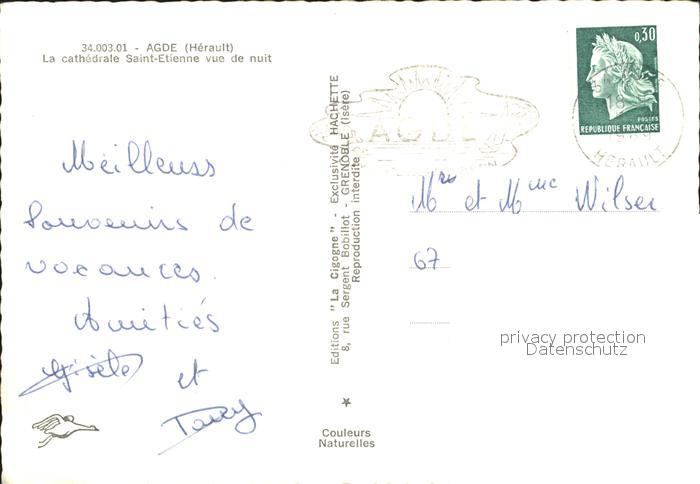 34.003.01 - AGDE (Hérault)
La cathédrale Saint-Etienne vue de nuit
Meilleurs
Souvenirs de
vacances.
Amitiés
Gisèle et
Editions "La Cigogne" - Exclusivité HACHETTE
8, rue Sergent Bobillot - GRENOBLE (Isère)
Reproduction interdite
Couleurs
Naturelles
0,30
POSTES
REPUBLIQUE FRANÇAISE
AGDE
HERAULT
Mrs et Mme Wilser
67
privacy protection
Datenschutz